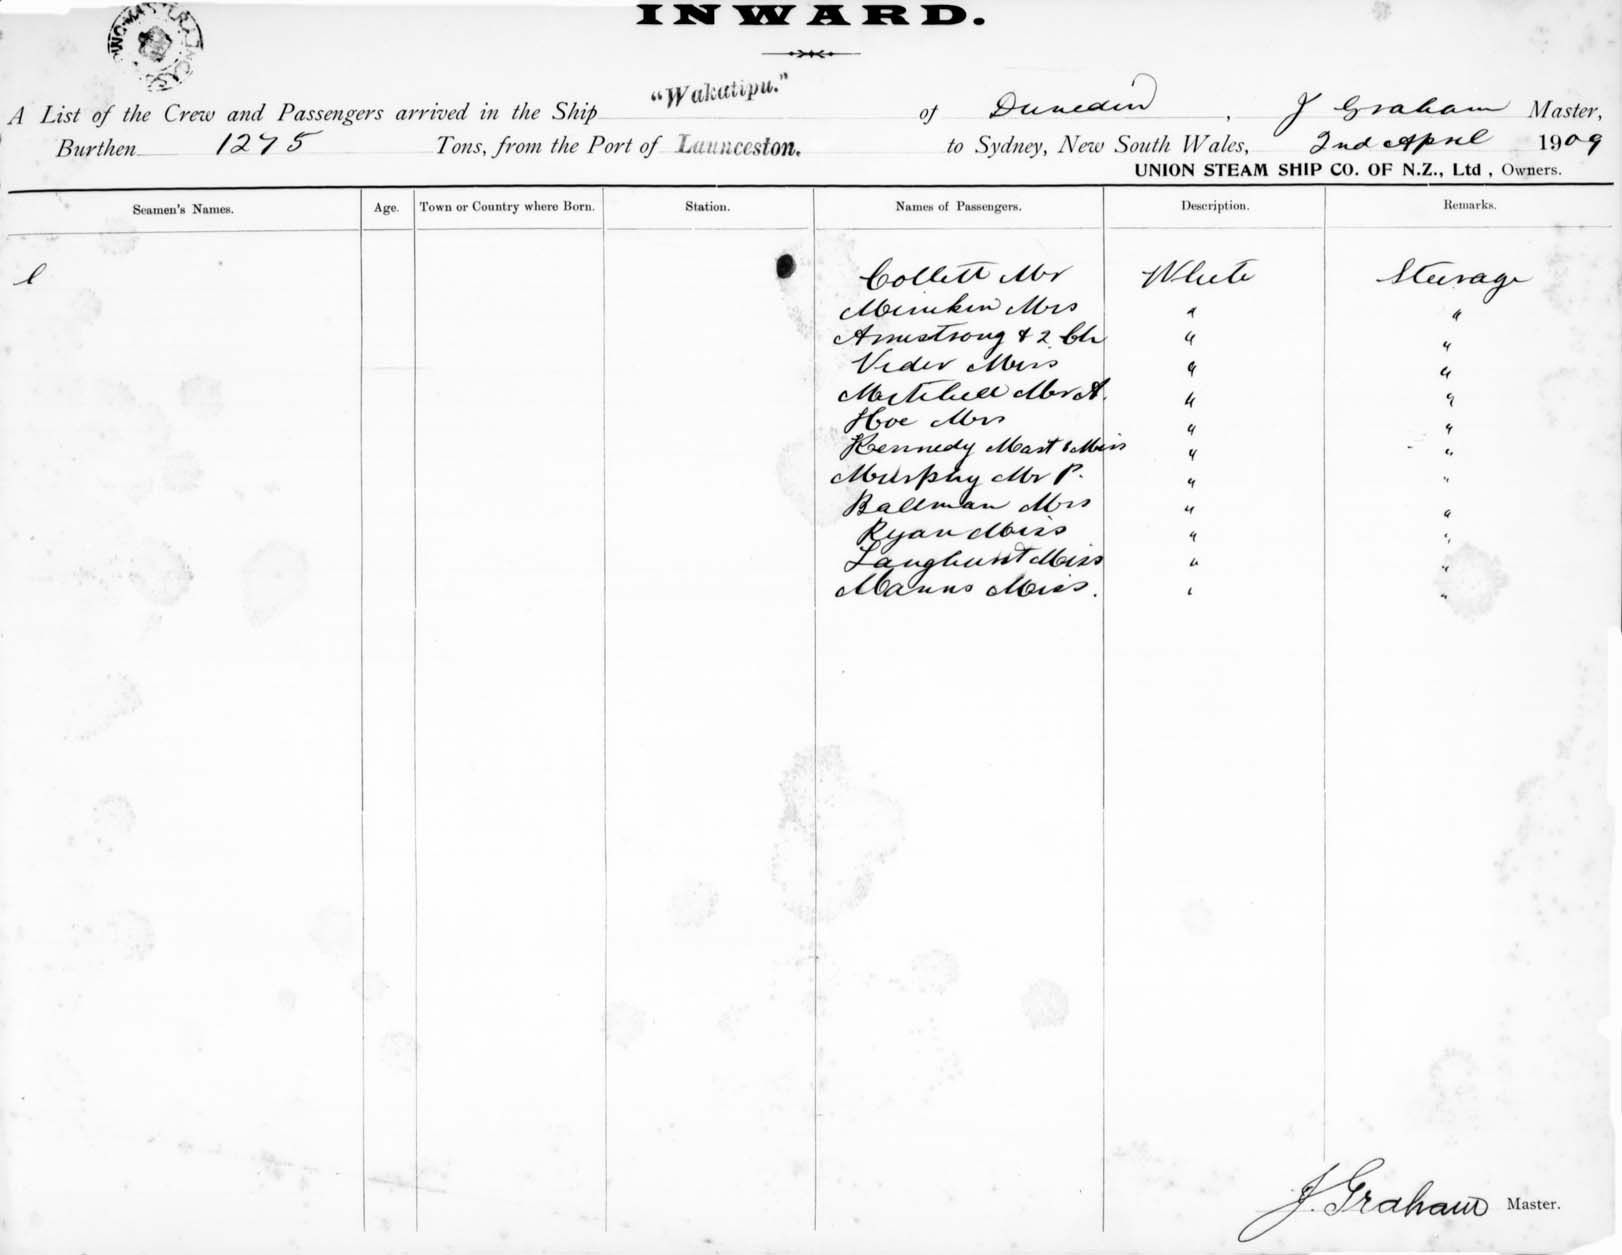 INWARD.
A List of the Crew and Passengers arrived in the Ship "Wakatipu." of Dunedin, J Graham Master,
Burthen 1275 Tons, from the Port of Launceston. to Sydney, New South Wales, 2nd April 1909
UNION STEAM SHIP CO. OF N.Z., Ltd, Owners.
Seamen's Names. Age. Town or Country where Born. Station. Names of Passengers. Description. Remarks.
Collett Mr White Steerage
Minikin Mrs " "
Armstrong & 2 Ch " "
Veder " "
Mitchell Mr A. " "
Hoe Mrs " "
Kennedy Mast & Miss " "
Murphy Mr P. " "
Ballman Mrs " "
Ryan Miss " "
Langhurst Miss " "
Manns Miss. " "
J. Graham Master.